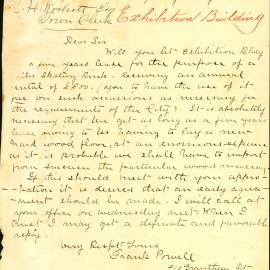 H Woolcott Esq
Town Clerk Exhibition Building
Dear Sir
Will you let Exhibition Bldg
a five years lease for the purpose of a
Skating Rink. Receiving an annual
rental of £50. / you to have the use of it
on such occasions as necessary for
the requirements of the City). It is absolutely
necessary that we get as long as a five years
lease owing to us having to buy a new
hard wood floor, at an enormous expense
as it is probable we shall have to import
from America the particular wood necessary.
If this should meet with your appro-
bation it is desired that an early agree-
ment should be made. I will call at
your office on Wednesday next when I
trust I may get a definite and favourable
reply.
Very Respt Yours
Frank Powell
Grantham St